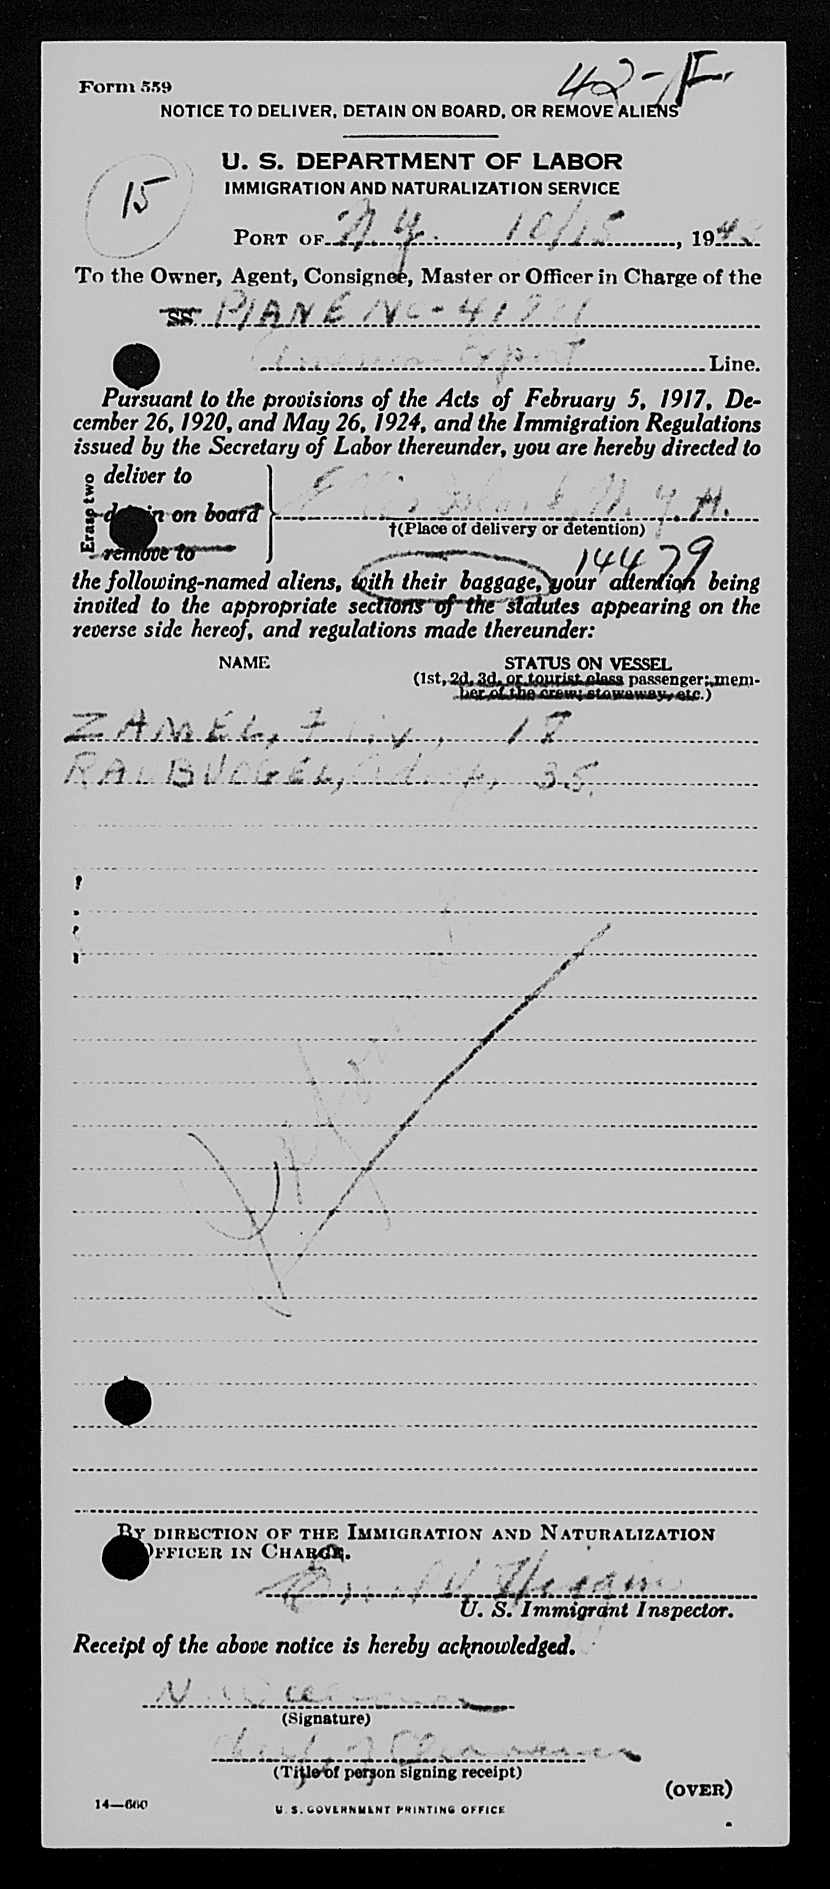 42-F
Form 559
NOTICE TO DELIVER, DETAIN ON BOARD, OR REMOVE ALIENS
U. S. DEPARTMENT OF LABOR
IMMIGRATION AND NATURALIZATION SERVICE
15
PORT OF N.Y. 10/15, 194
To the Owner, Agent, Consignee, Master or Officer in Charge of the
SS. PLANE NC-41
Export Line.
Pursuant to the provisions of the Acts of February 5, 1917, De-
cember 26, 1920, and May 26, 1924, and the Immigration Regulations
issued by the Secretary of Labor thereunder, you are hereby directed to
Erase two
deliver to
detain on board
Ellis Island, N.Y.H.
†(Place of delivery or detention)
remove to
14479
the following-named aliens, with their baggage, your attention being
invited to the appropriate sections of the statutes appearing on the
reverse side hereof, and regulations made thereunder:
NAME
STATUS ON VESSEL
(1st, 2d, 3d, or tourist class passenger; mem-
ber of the crew; stowaway, etc.)
ZAMEL, 18
35
BY DIRECTION OF THE IMMIGRATION AND NATURALIZATION
OFFICER IN CHARGE.
U. S. Immigrant Inspector.
Receipt of the above notice is hereby acknowledged.
(Signature)
(Title of person signing receipt)
(OVER)
14—660
U. S. GOVERNMENT PRINTING OFFICE